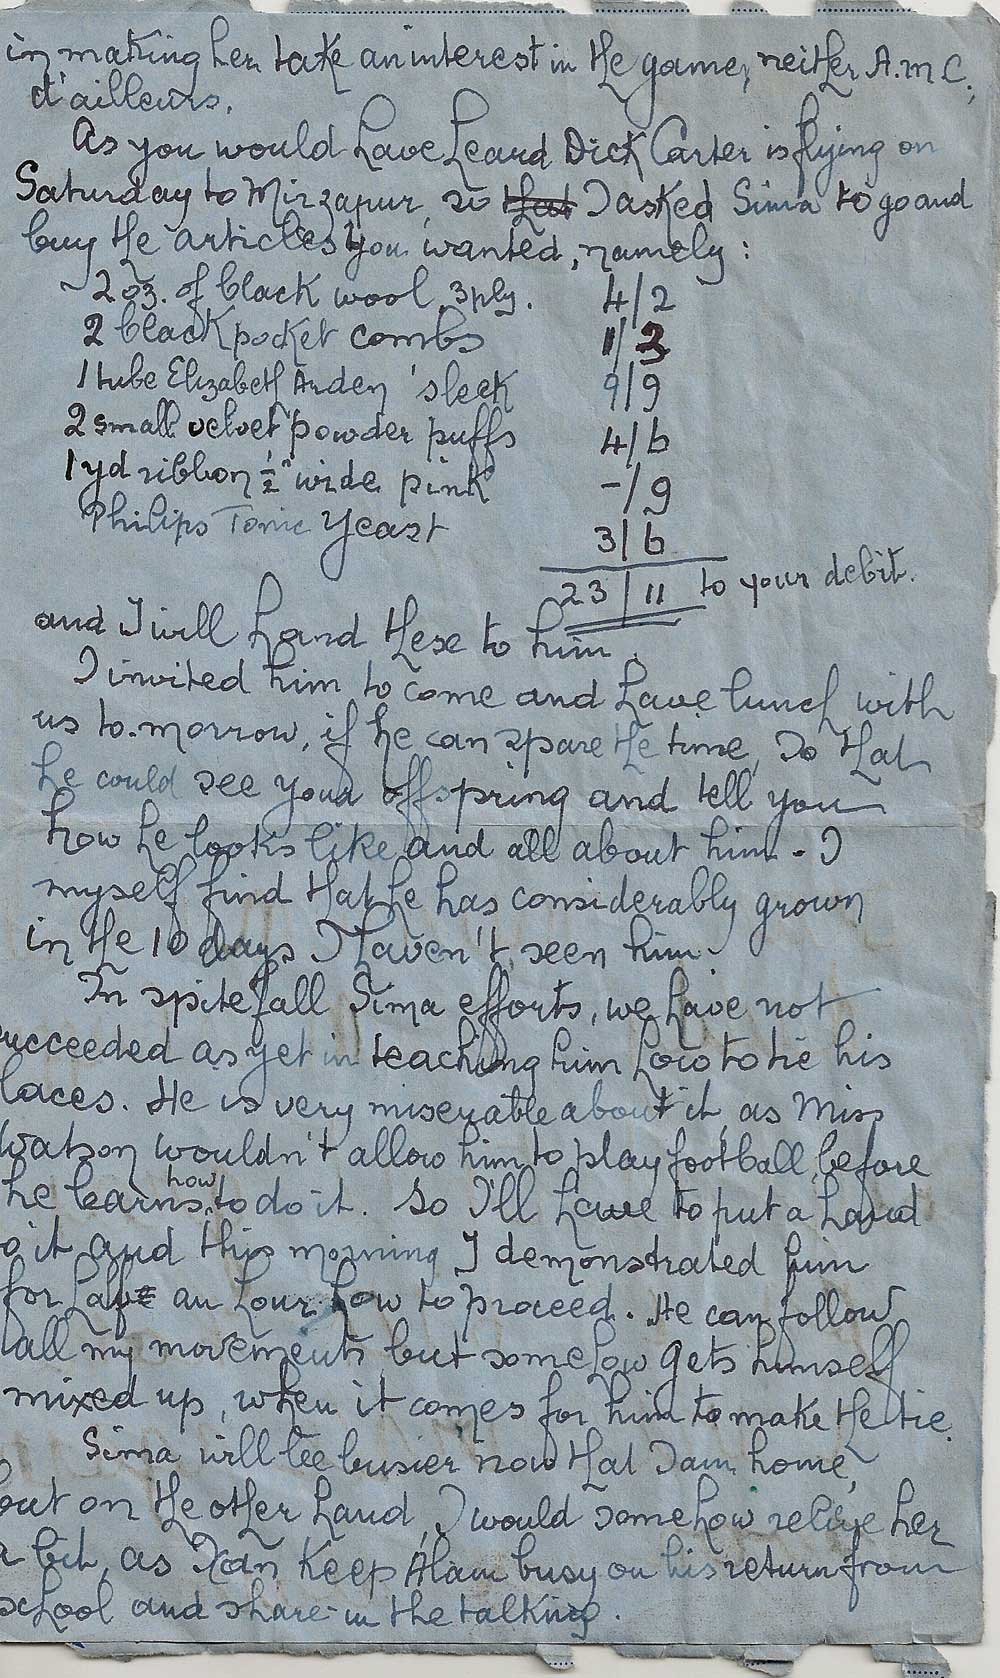 in making her take an interest in the game, neither A.M.C.,
d'ailleurs.
As you would have heard Dick Carter is flying on
Saturday to Mirzapur, so that I asked Sima to go and
buy the articles you wanted, namely:
2 oz. of black wool 3ply. 4/2
2 black pocket combs 1/3
1 tube Elizabeth Arden 'sleek 9/9
2 small velvet powder puffs 4/6
1 yd ribbon ½" wide pink -/9
Philips Tonic Yeast 3/6
23/11 to your debit.
and I will hand these to him.
I invited him to come and have lunch with
us to-morrow, if he can spare the time, so that
he could see your offspring and tell you
how he looks like and all about him - I
myself find that he has considerably grown
in the 10 days I haven't seen him.
In spite of all Sima efforts, we have not
succeeded as yet in teaching him how to tie his
laces. He is very miserable about it, as Miss
Watson wouldn't allow him to play football before
he learns how to do it. So I'll have to put a hand
to it and this morning I demonstrated him
for half an hour how to proceed. He can follow
all my movements but somehow gets himself
mixed up, when it comes for him to make the tie.
Sima will be busier now that I am home,
but on the other hand, I would somehow relieve her
a bit, as I can keep Alain busy on his return from
school and share in the talking.